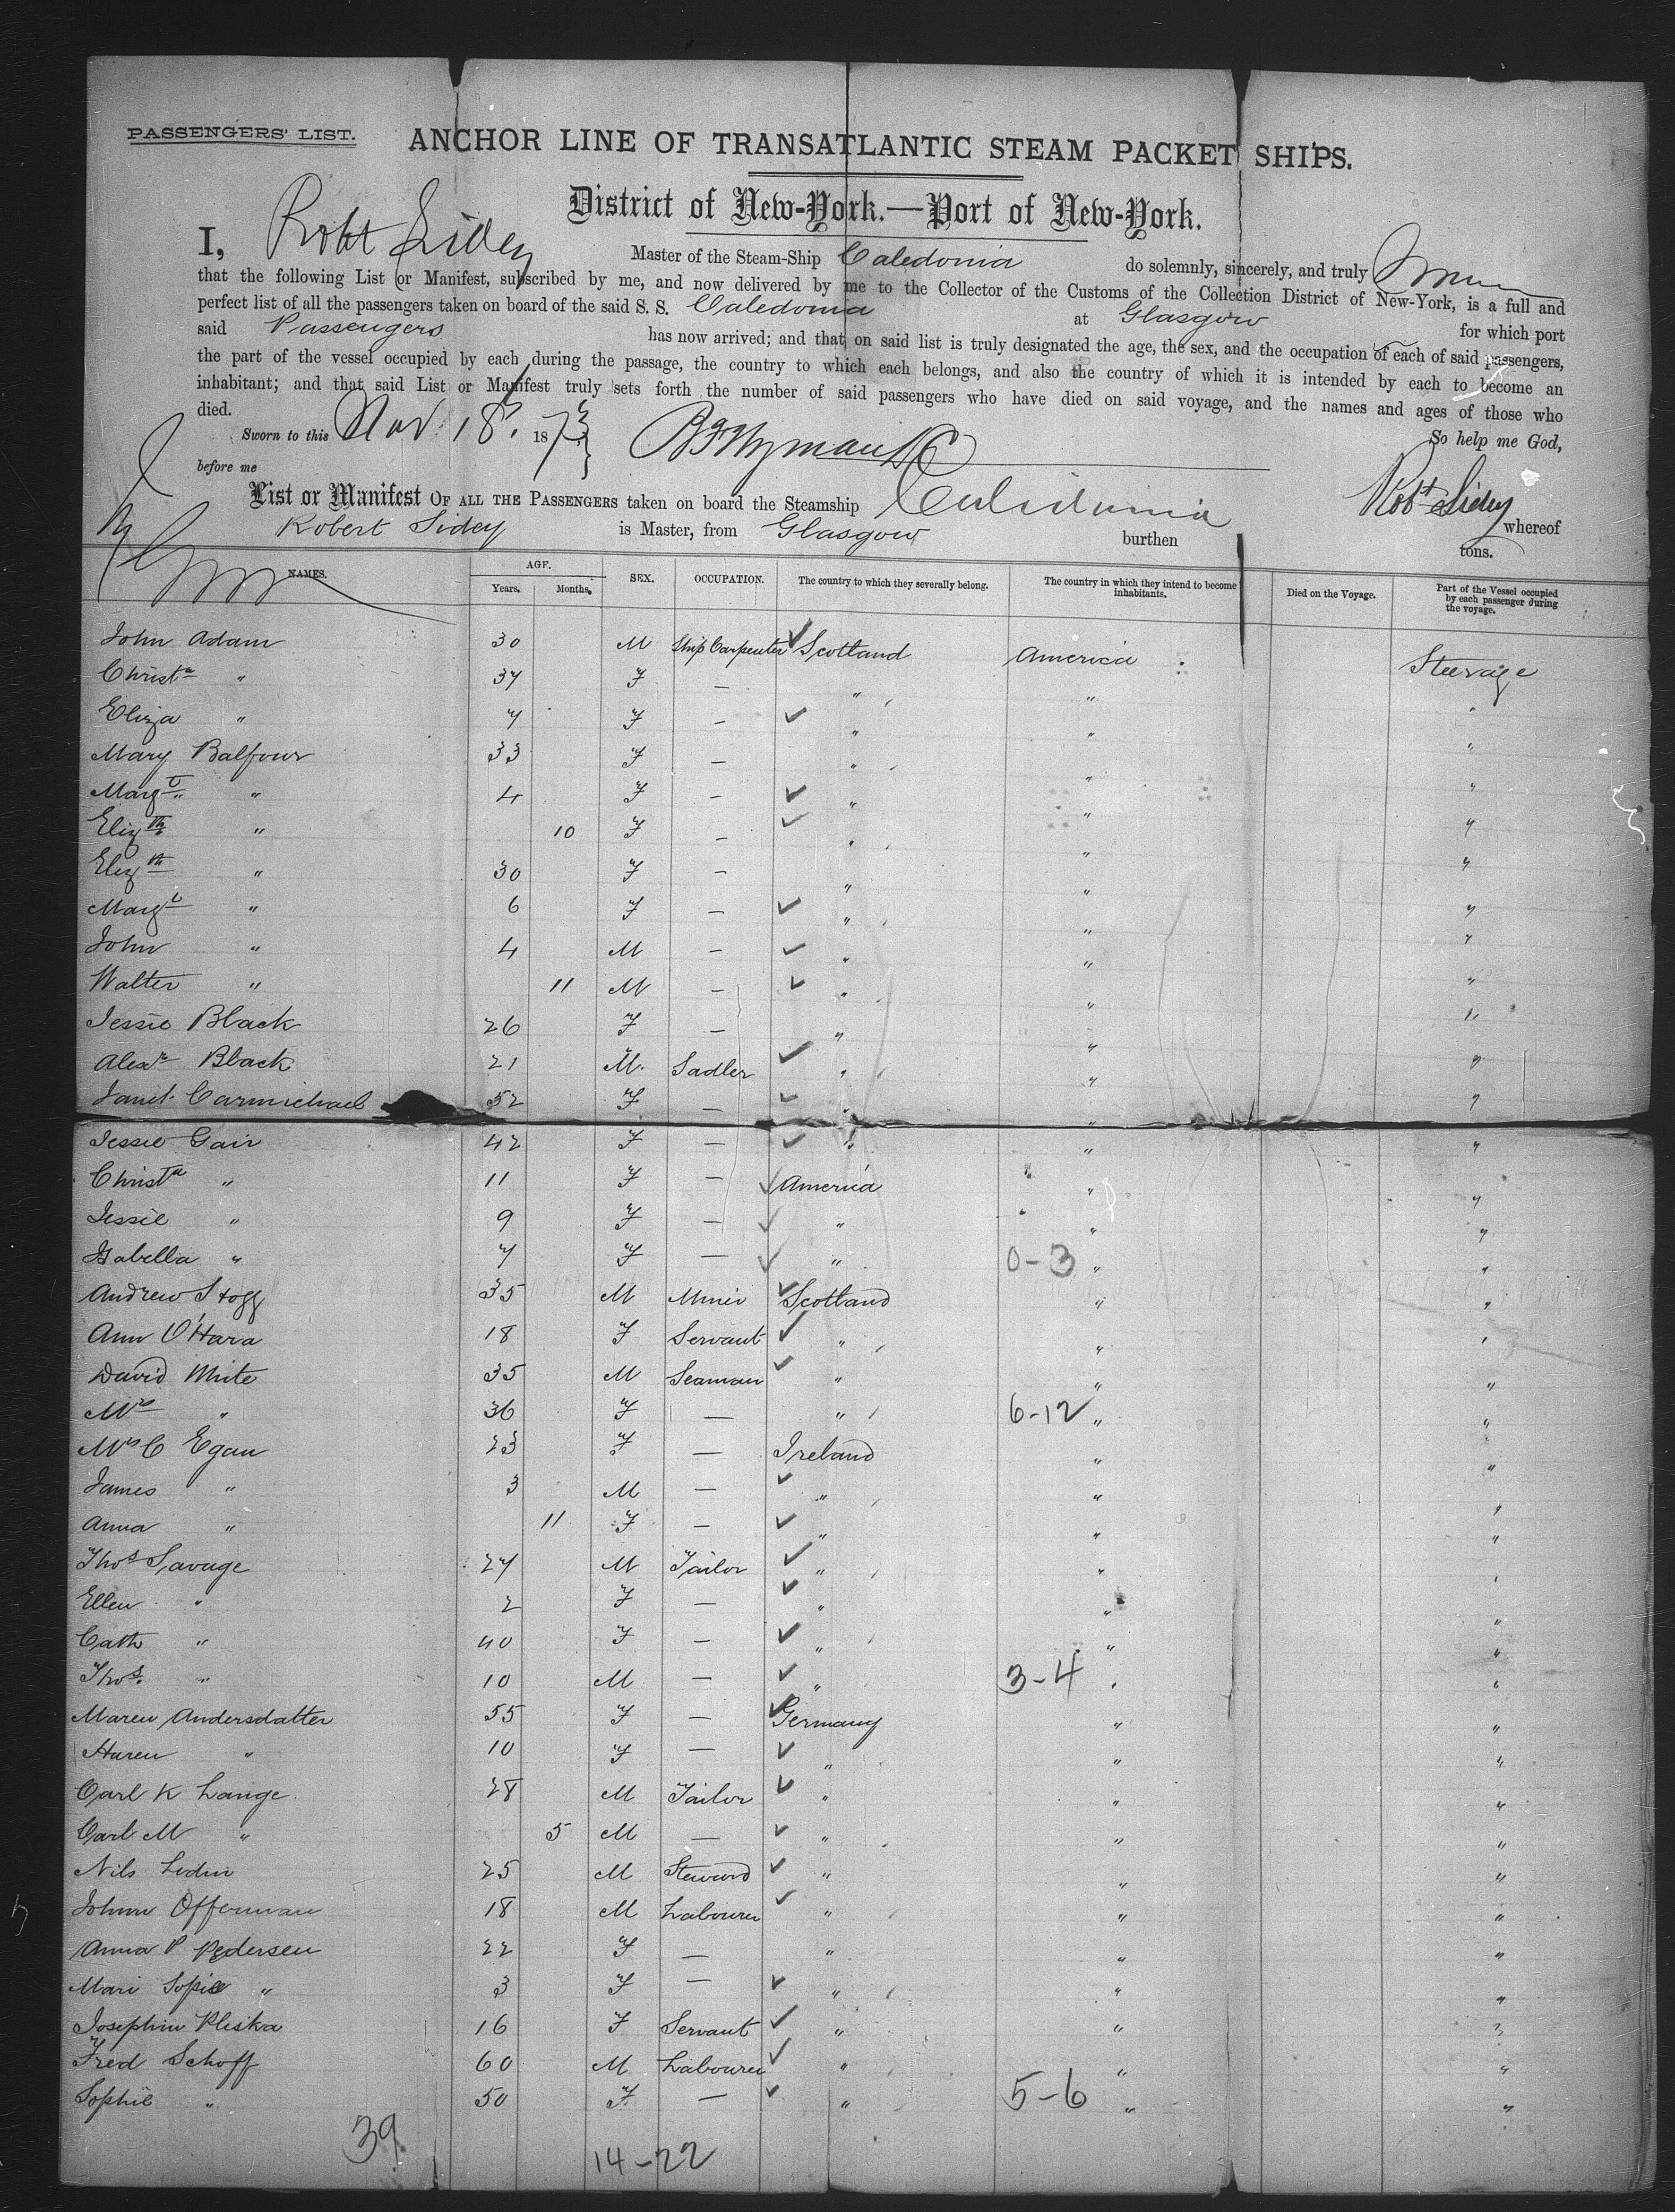 PASSENGERS' LIST.
ANCHOR LINE OF TRANSATLANTIC STEAM PACKET SHIPS.
District of New-York.—Port of New-York.
I, Robt Sidey Master of the Steam-Ship Caledonia do solemnly, sincerely, and truly
that the following List or Manifest, subscribed by me, and now delivered by me to the Collector of the Customs of the Collection District of New-York, is a full and
perfect list of all the passengers taken on board of the said S. S. Caledonia at Glasgow for which port
said Passengers has now arrived; and that on said list is truly designated the age, the sex, and the occupation of each of said passengers,
the part of the vessel occupied by each during the passage, the country to which each belongs, and also the country of which it is intended by each to become an
inhabitant; and that said List or Manifest truly sets forth the number of said passengers who have died on said voyage, and the names and ages of those who
died. So help me God,
Sworn to this Nov 18 187
before me
Robt Sidey
List or Manifest OF ALL THE PASSENGERS taken on board the Steamship Caledonia whereof
Robert Sidey is Master, from Glasgow burthen tons.
NAMES. AGE. Years. Months. SEX. OCCUPATION. The country to which they severally belong. The country in which they intend to become inhabitants. Died on the Voyage. Part of the Vessel occupied by each passenger during the voyage.
John Adam 30 M Ship Carpenter Scotland America Steerage
Christa " 37 F — " " "
Eliza " 7 F — " " "
Mary Balfour 33 F — " " "
Margt " 4 F — " " "
Elizth " 10 F — " " "
Elizth " 30 F — " " "
Margt " 6 F — " " "
John " 4 M — " " "
Walter " 11 M — " " "
Jessie Black 26 F — " " "
Alexr Black 21 M. Sadler " " "
Janet Carmichael 52 F — " " "
Jessie Gair 42 F — " " "
Christa " 11 F — America " "
Jessie " 9 F — " " "
Isabella " 7 F — " 0-3 " "
Andrew Stogg 35 M Miner Scotland " "
Ann O'Hara 18 F Servant " " "
David White 35 M Seaman " " "
Mrs " 36 F — " 6-12 " "
Mrs C Egan 23 F — Ireland " "
James " 3 M — " " "
Anna " 11 F — " " "
Thos Savage 27 M Tailor " " "
Ellen " 2 F — " " "
Cath " 40 F — " " "
Thos. " 10 M — " 3-4 " "
Maren Andersdatter 55 F — Germany " "
Haren " 10 F — " " "
Carl K Lange 28 M Tailor " " "
Carl M " 5 M — " " "
Nils 25 M Steward " " "
Offerman 18 M Labourer " " "
Anna P Pedersen 22 F — " " "
Mari Sopie " 3 F — " " "
Josephin Pliska 16 F Servant " " "
Fred Schoff 60 M Labourer " " "
Sophie " 50 F. — " 5-6 " "
39
14-22